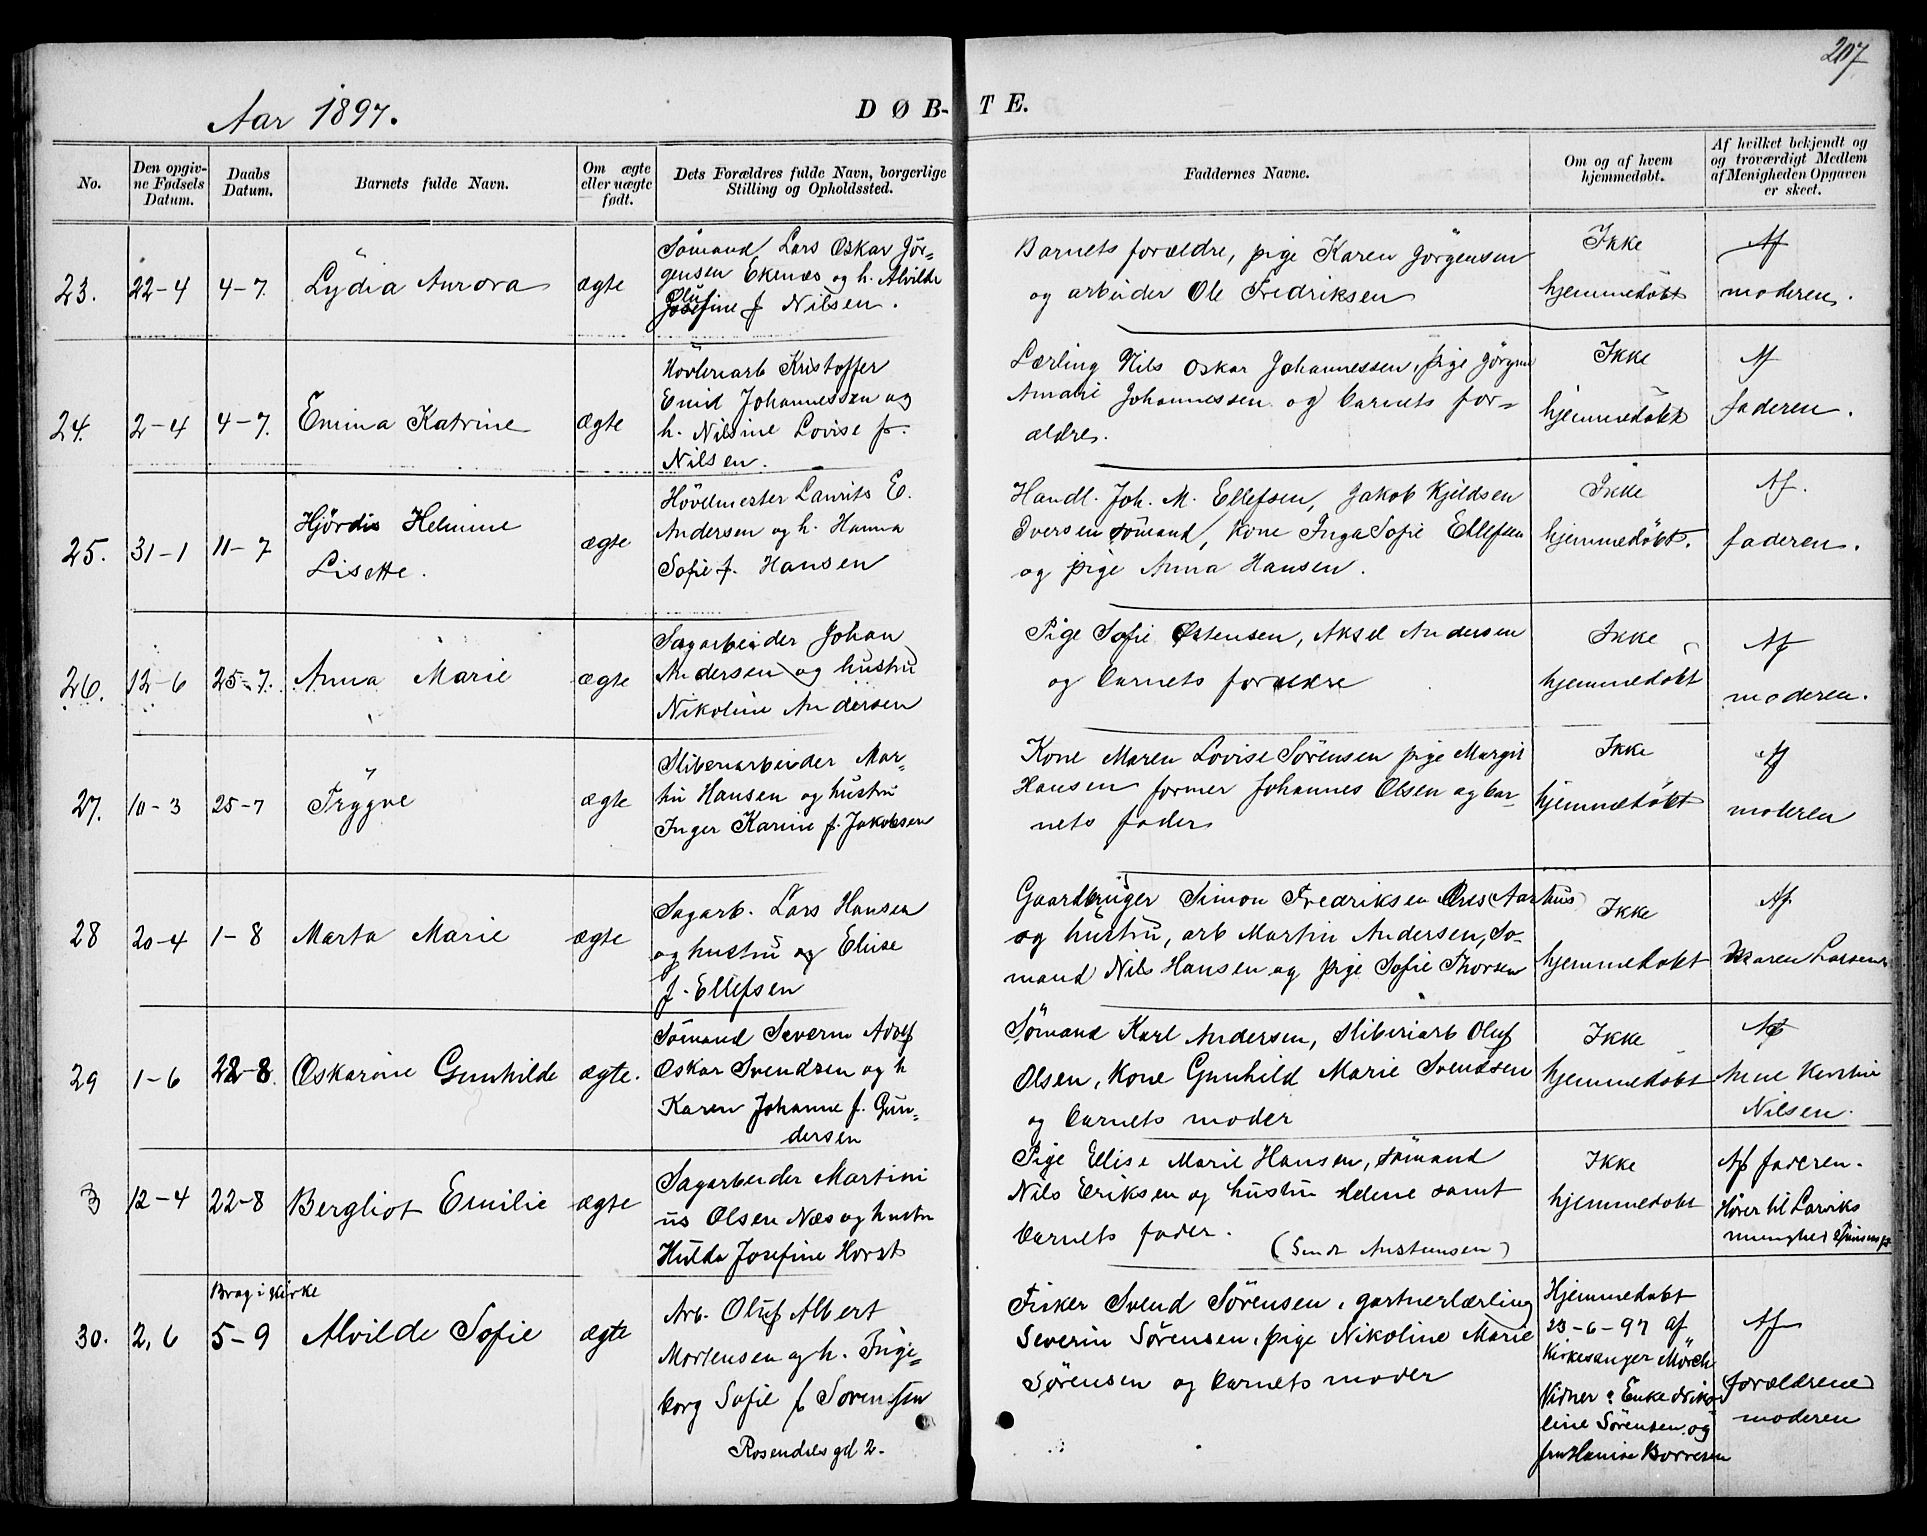 207
Aar 1897.
DØB-TE.
No.
Den opgivne Fødsels Datum.
Daabs Datum.
Barnets fulde Navn.
Om ægte eller uægte født.
Dets Forældres fulde Navn, borgerlige Stilling og Opholdssted.
Faddernes Navne.
Om og af hvem hjemmedøbt.
Af hvilket bekjendt og og troværdigt Medlem af Menigheden Opgaven er skeet.
23.
22-4
4-7
Lydia Aurora
ægte
Sømand Lars Oskar Jør-
gensen Ekenæs og h. Alvilde
Oluf
Josefine f Nilsen.
Barnets forældre, pige Karen Jørgensen
og arbeider Ole Fredriksen
Ikke
hjemmedøbt
Af
moderen.
24.
2-4
4-7.
Emma Katrine
ægte
Høvleriarb Kristoffer
Emil Johannessen og
h. Nilsine Lovise f.
Nilsen.
Lærling Nils Oskar Johannessen, pige Jørgine
Amalie Johannessen og barnets for-
ældre.
Ikke
hjemmedøbt
Af
faderen.
25.
31-1
11-7
Hjørdis Helmine
Lisette.
ægte
Høvelmester Laurits E.
Andersen og h. Hanna
Sofie f. Hansen
Handl. Joh. M. Ellefsen, Jakob Kjeldsen
Iversen sømand, Kone Inga Sofie Ellefsen
og pige Anna Hansen.
Ikke
hjemmedøbt.
Af.
faderen.
26.
12-6
25-7.
Anna Marie
ægte
Sagarbeider Johan
Andersen og hustru
Nikoline Andersen
Pige Sofie Østensen, Aksel Andersen
og barnets forældre
Ikke
hjemmedøbt
Af
moderen.
27.
10-3
25-7
Trygve
ægte
Sliberiarbeider Mar-
tin Hansen og hustru
Inger Karine f. Jakobsen
Kone Maren Lovise Sørensen pige Margit
Hansen former Johannes Olsen og bar-
nets fader
Ikke
hjemmedøbt
Af
moderen
28
20-4
1-8
Marta Marie
ægte
Sagarb. Lars Hansen
og hustru og Elise
f. Ellefsen
Gaardbruger Simon Fredriksen Øres (Aarhus)
og hustru, arb Martin Andersen, Sø-
mand Nils Hansen og pige Sofie Thorsen
Ikke
hjemmedøbt
Af
Maren Larsen
29
1-6
22-8.
Oskarine Gunhilde
ægte.
Sømand Severin Adolf
Oskar Svendsen og h
Karen Johanne f. Gun-
dersen
Sømand Karl Andersen, Sliberiarb Oluf
Olsen, Kone Gunhild Marie Svendsen
og barnets moder
Ikke
hjemmedøbt
Af
Anne Kirstine
Nilsen.
3
12-4
22-8
Bergliot Emilie
ægte
Sagarbeider Martini
us Olsen Næs og hustru
Hulda Josefine Horst
Pige Elise Marie Hansen, sømand
Nils Eriksen og hustru Helene samt
barnets fader.
Ikke
hjemmedøbt
Af faderen.
Hører til Larviks
menighed
30.
2,6
Brag i Kirke
5-9
Alvilde Sofie
ægte
Arb. Oluf Albert
Mortensen og h. Inge-
borg Sofie f Sørensen
gd 2.
Fisker Svend Sørensen, gartnerlærling
Severin Sørensen, pige Nikoline Marie
Sørensen og barnets moder
Hjemmedøbt
23-6-97 af
Kirkesanger Mørch
Vidner: Enke Niko-
line Sørensen og
fru Borresen
Af
forældrene
moderen